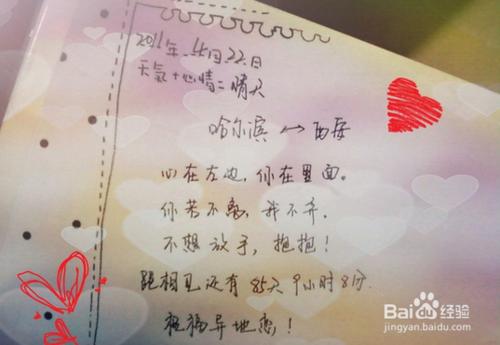 2011年4月22日
天氣+心情=晴天
哈尔滨↔西安
心在左边,你在里面。
你若不离,我不弃.
不想放手,抱抱!
距相见还有85天9小时8分.
祝福异地恋!
Baidu经验
jingyan.baidu.com